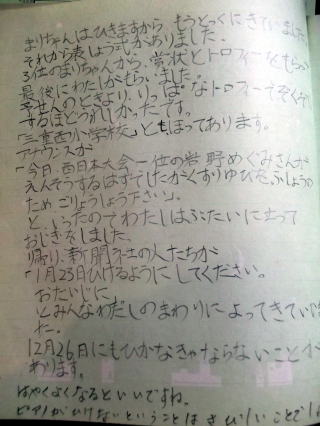 まりちゃんはひきますから もうとっくにきていました
それから表しょう式がありました。
3位のまりちゃんから、賞状とトロフィーをもらっ
最後にわたしがもらいました。
予せんのときより、りっぱなトロフィーでぞくぞく
するほどうれしかったです。
「三重西小学校」ともほってあります。
アナウンスが
「今日、西日本大会一位の岩野めぐみさんが
えんそうするはずでしたがくすりゆびをふしょうの
ためごりょうしょう下さい」。
といったのでわたしはぶたいに立って
おじぎをしました。
帰り、新聞社の人たちが
「1月23日ひけるようにしてください。
おだいじに」
とみんなわたしのまわりによってきていい
た。
12月26日にもひかなきゃならないことが
あります。
はやくよくなるといいですね。
ピアノがひけないということはさびしいことで